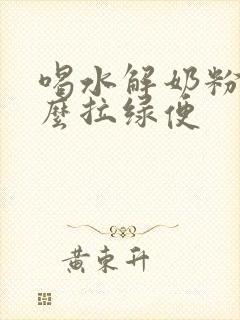 喝水解奶粉
麼拉绿便
黄東升